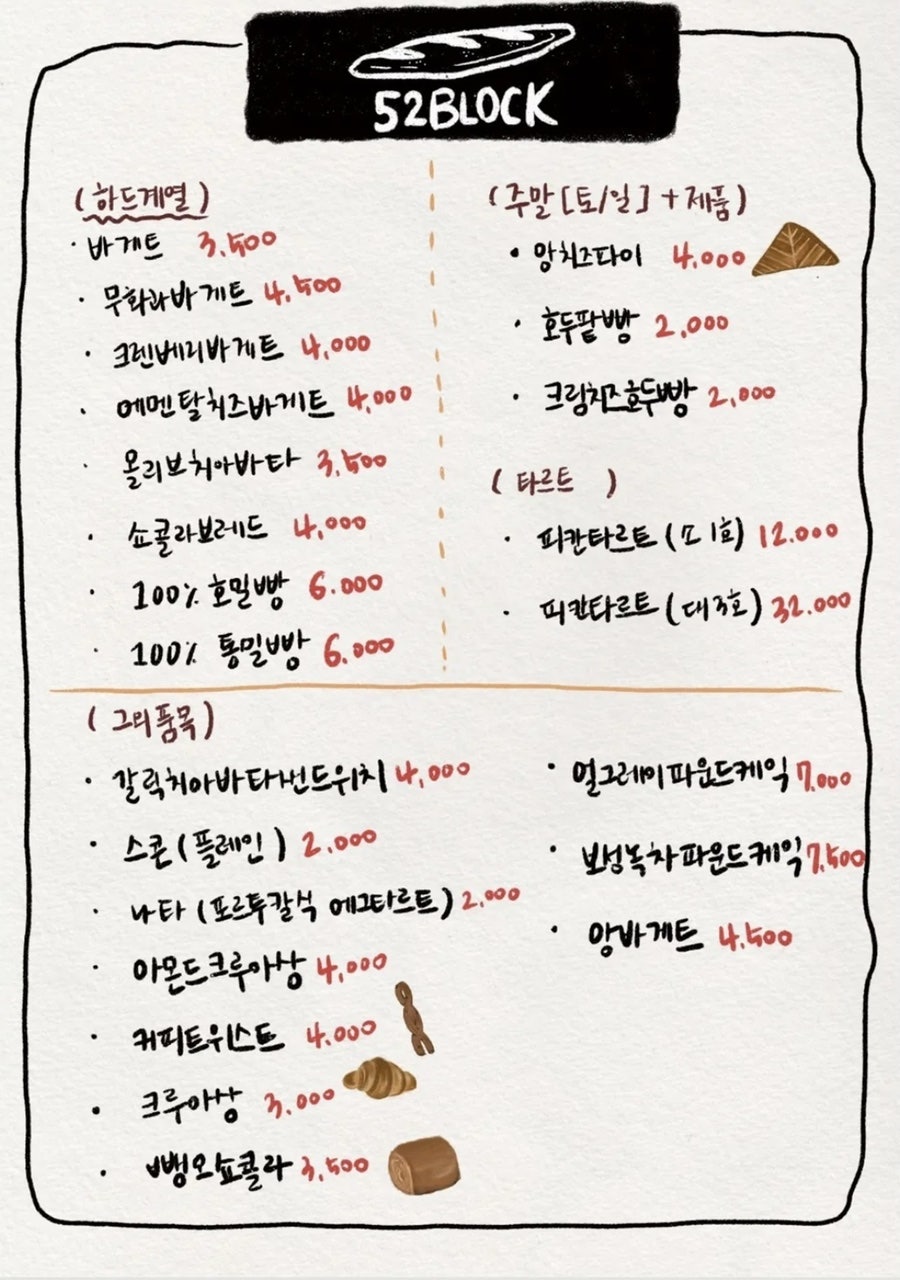 52BLOCK
(하드계열)
· 바게트 3,500
· 무화과바게트 4,500
· 크렌베리바게트 4,000
· 에멘탈치즈바게트 4,000
· 올리브치아바타 3,500
· 쇼콜라브레드 4,000
· 100% 호밀빵 6.000
· 100% 통밀빵 6.000
(주말[토/일]+제품)
· 앙치즈파이 4,000
· 호두팥빵 2,000
· 크림치즈호두빵 2,000
(타르트 )
· 피칸타르트(소1호) 12.000
· 피칸타르트(대3호) 32.000
(그외품목)
· 갈릭치아바타샌드위치 4,000
· 스콘(플레인) 2.000
· 나타(포르투칼식 에그타르트) 2,000
· 아몬드크루아상 4,000
· 커피트위스트 4.000
· 크루아상 3,000
· 뺑오쇼콜라 3,500
· 얼그레이파운드케익 7,000
· 보성녹차파운드케익 7,500
· 앙바게트 4,500